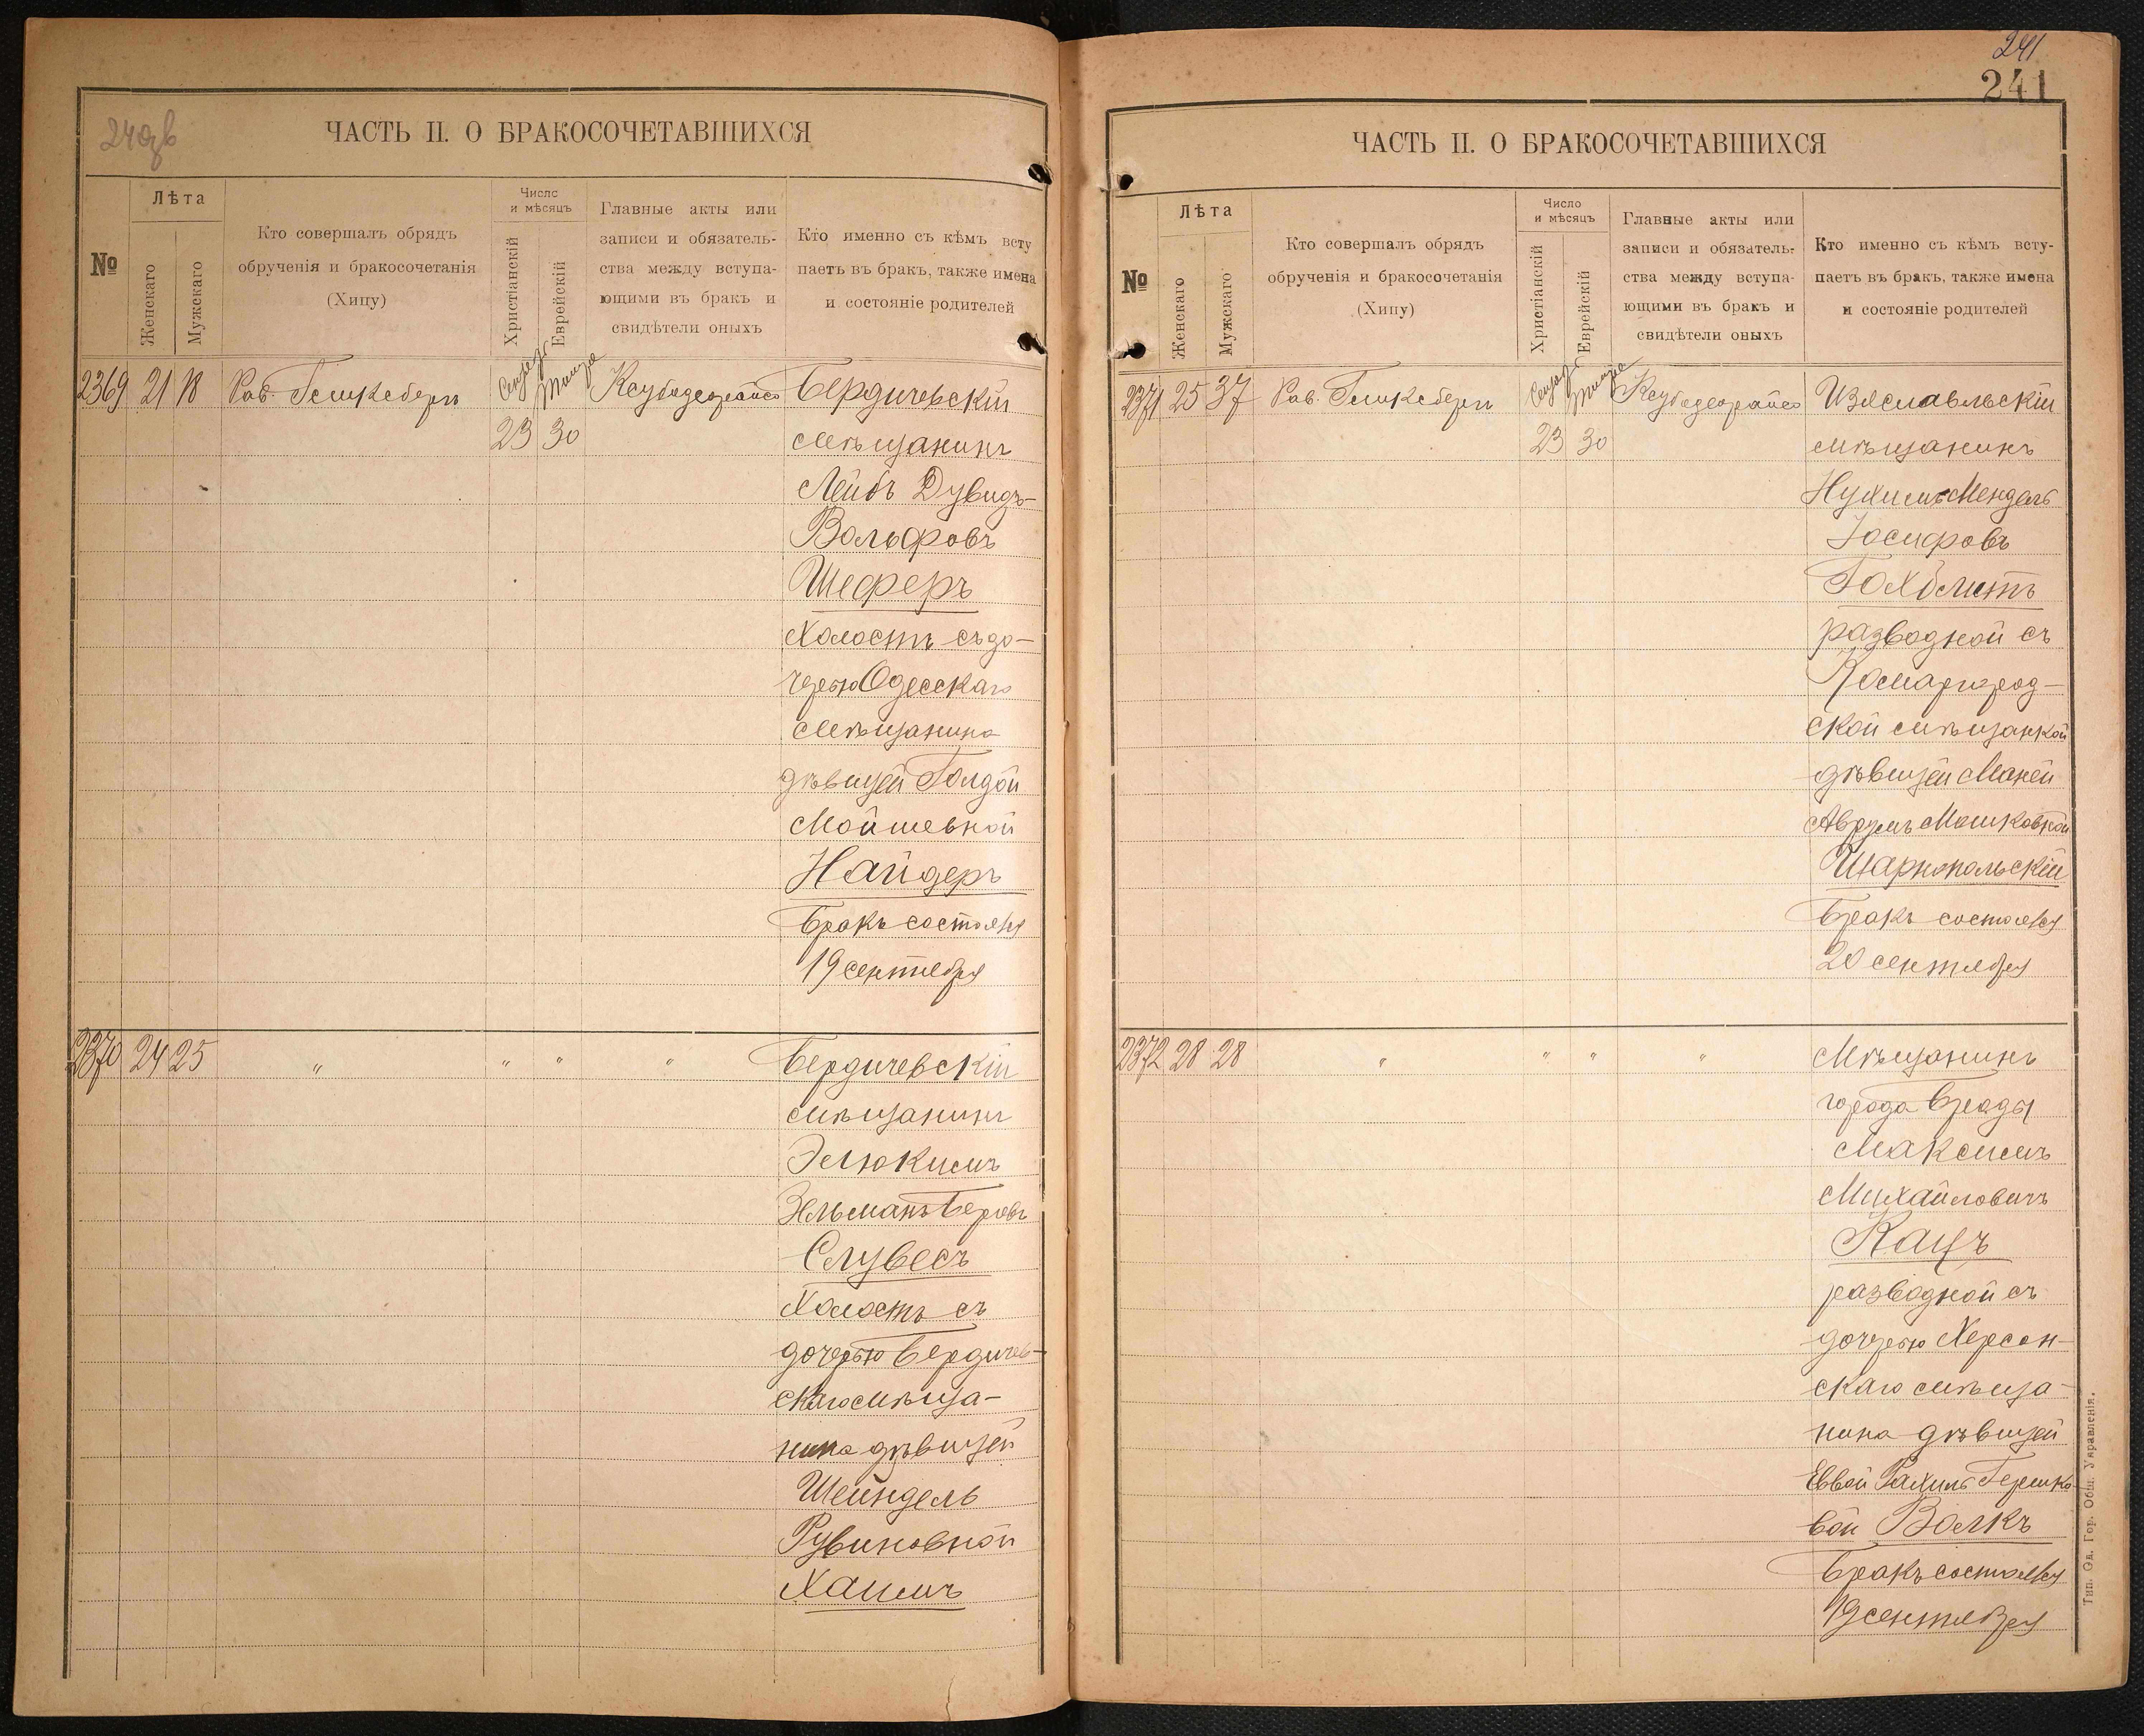 240об
ЧАСТЬ II. О БРАКОСОЧЕТАВШИХСЯ
№
Лѣта
Женскаго
Мужскаго
Кто совершалъ обрядъ
обрученія и бракосочетанія
(Хипу)
Число
и мѣсяцъ
Христіанскій
Еврейскій
Главные акты или
записи и обязатель-
ства между вступа-
ющими въ бракъ и
свидѣтели оныхъ
Кто именно съ кѣмъ всту
паетъ въ бракъ, также имена
и состояніе родителей
2369 21 18 Рав. 23 30 Бердичевскій
мѣщанинъ
Лейбъ Дувидъ-
Вольфовъ
Шеферъ
холостъ съ до-
черью Одесскаго
мѣщанина
дѣвицей Голдой
Мойшевной
Найдеръ
Бракъ состоялся
19 сентября
2370 24 25 " " " " Бердичевскій
мѣщанинъ
Элюкимъ
Зельманъ Беровъ
Слувесъ
холостъ съ
дочерью Бердичев-
скаго мѣща-
нина дѣвицей
Шейндель
Рувиновной
Хаимъ
241
241
ЧАСТЬ II. О БРАКОСОЧЕТАВШИХСЯ
№
Лѣта
Женскаго
Мужскаго
Кто совершалъ обрядъ
обрученія и бракосочетанія
(Хипу)
Число
и мѣсяцъ
Христіанскій
Еврейскій
Главные акты или
записи и обязатель-
ства между вступа-
ющими въ бракъ и
свидѣтели оныхъ
Кто именно съ кѣмъ всту-
паетъ въ бракъ, также имена
и состояніе родителей
2371 25 37 Рав. 23 30 Изяславльскій
мѣщанинъ
Нухимъ Мендель
Іосифовъ
Гохблитъ
разводной съ
Комаргород-
ской мѣщанкой
дѣвицей Маней
Аврумъ Мошковной
Шаргопольскій
Бракъ состоялся
20 сентября
2372 28 28 " " " " Мѣщанинъ
города Броды
Максимъ
Михайловичъ
Кацъ
разводной съ
дочерью Херсон-
скаго мѣща-
нина дѣвицей
Еввой Рахиль Гершко-
вой Волкъ
Бракъ состоялся
19 сентября
Тип. Од. Гор. Общ. Управленія.